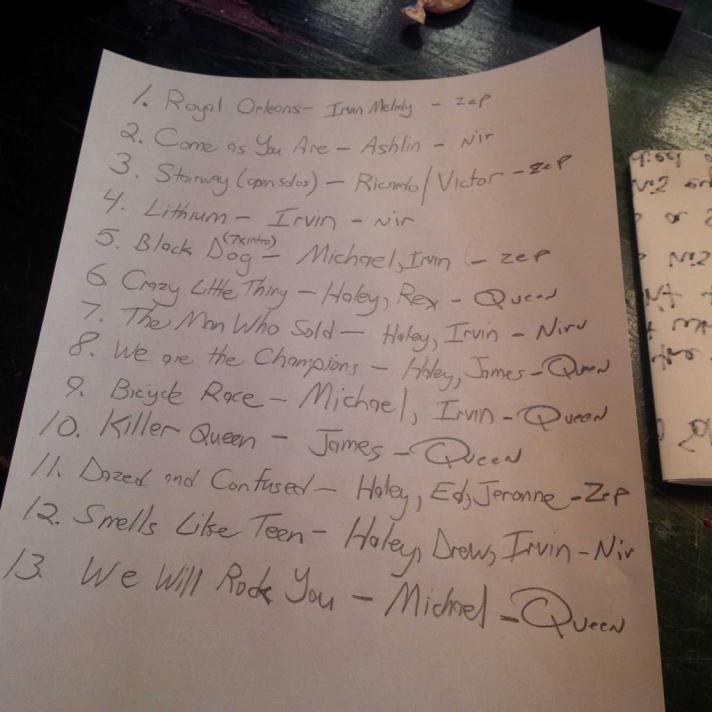 1. Royal Orleans - Irvin Melody - Zep
2. Come as You Are - Ashlin - Nir
3. Stairway (open solos) - Ricardo/Victor - Zep
4. Lithium - Irvin - Nir
5. Black Dog (7x intro) - Michael, Irvin - Zep
6. Crazy Little Thing - Haley, Rex - Queen
7. The Man Who Sold - Haley, Irvin - Nirv
8. We are the Champions - Haley, James - Queen
9. Bicycle Race - Michael, Irvin - Queen
10. Killer Queen - James - Queen
11. Dazed and Confused - Haley, Ed, Jeronne - Zep
12. Smells Like Teen - Haley, Drew, Irvin - Nir
13. We Will Rock You - Michael - Queen